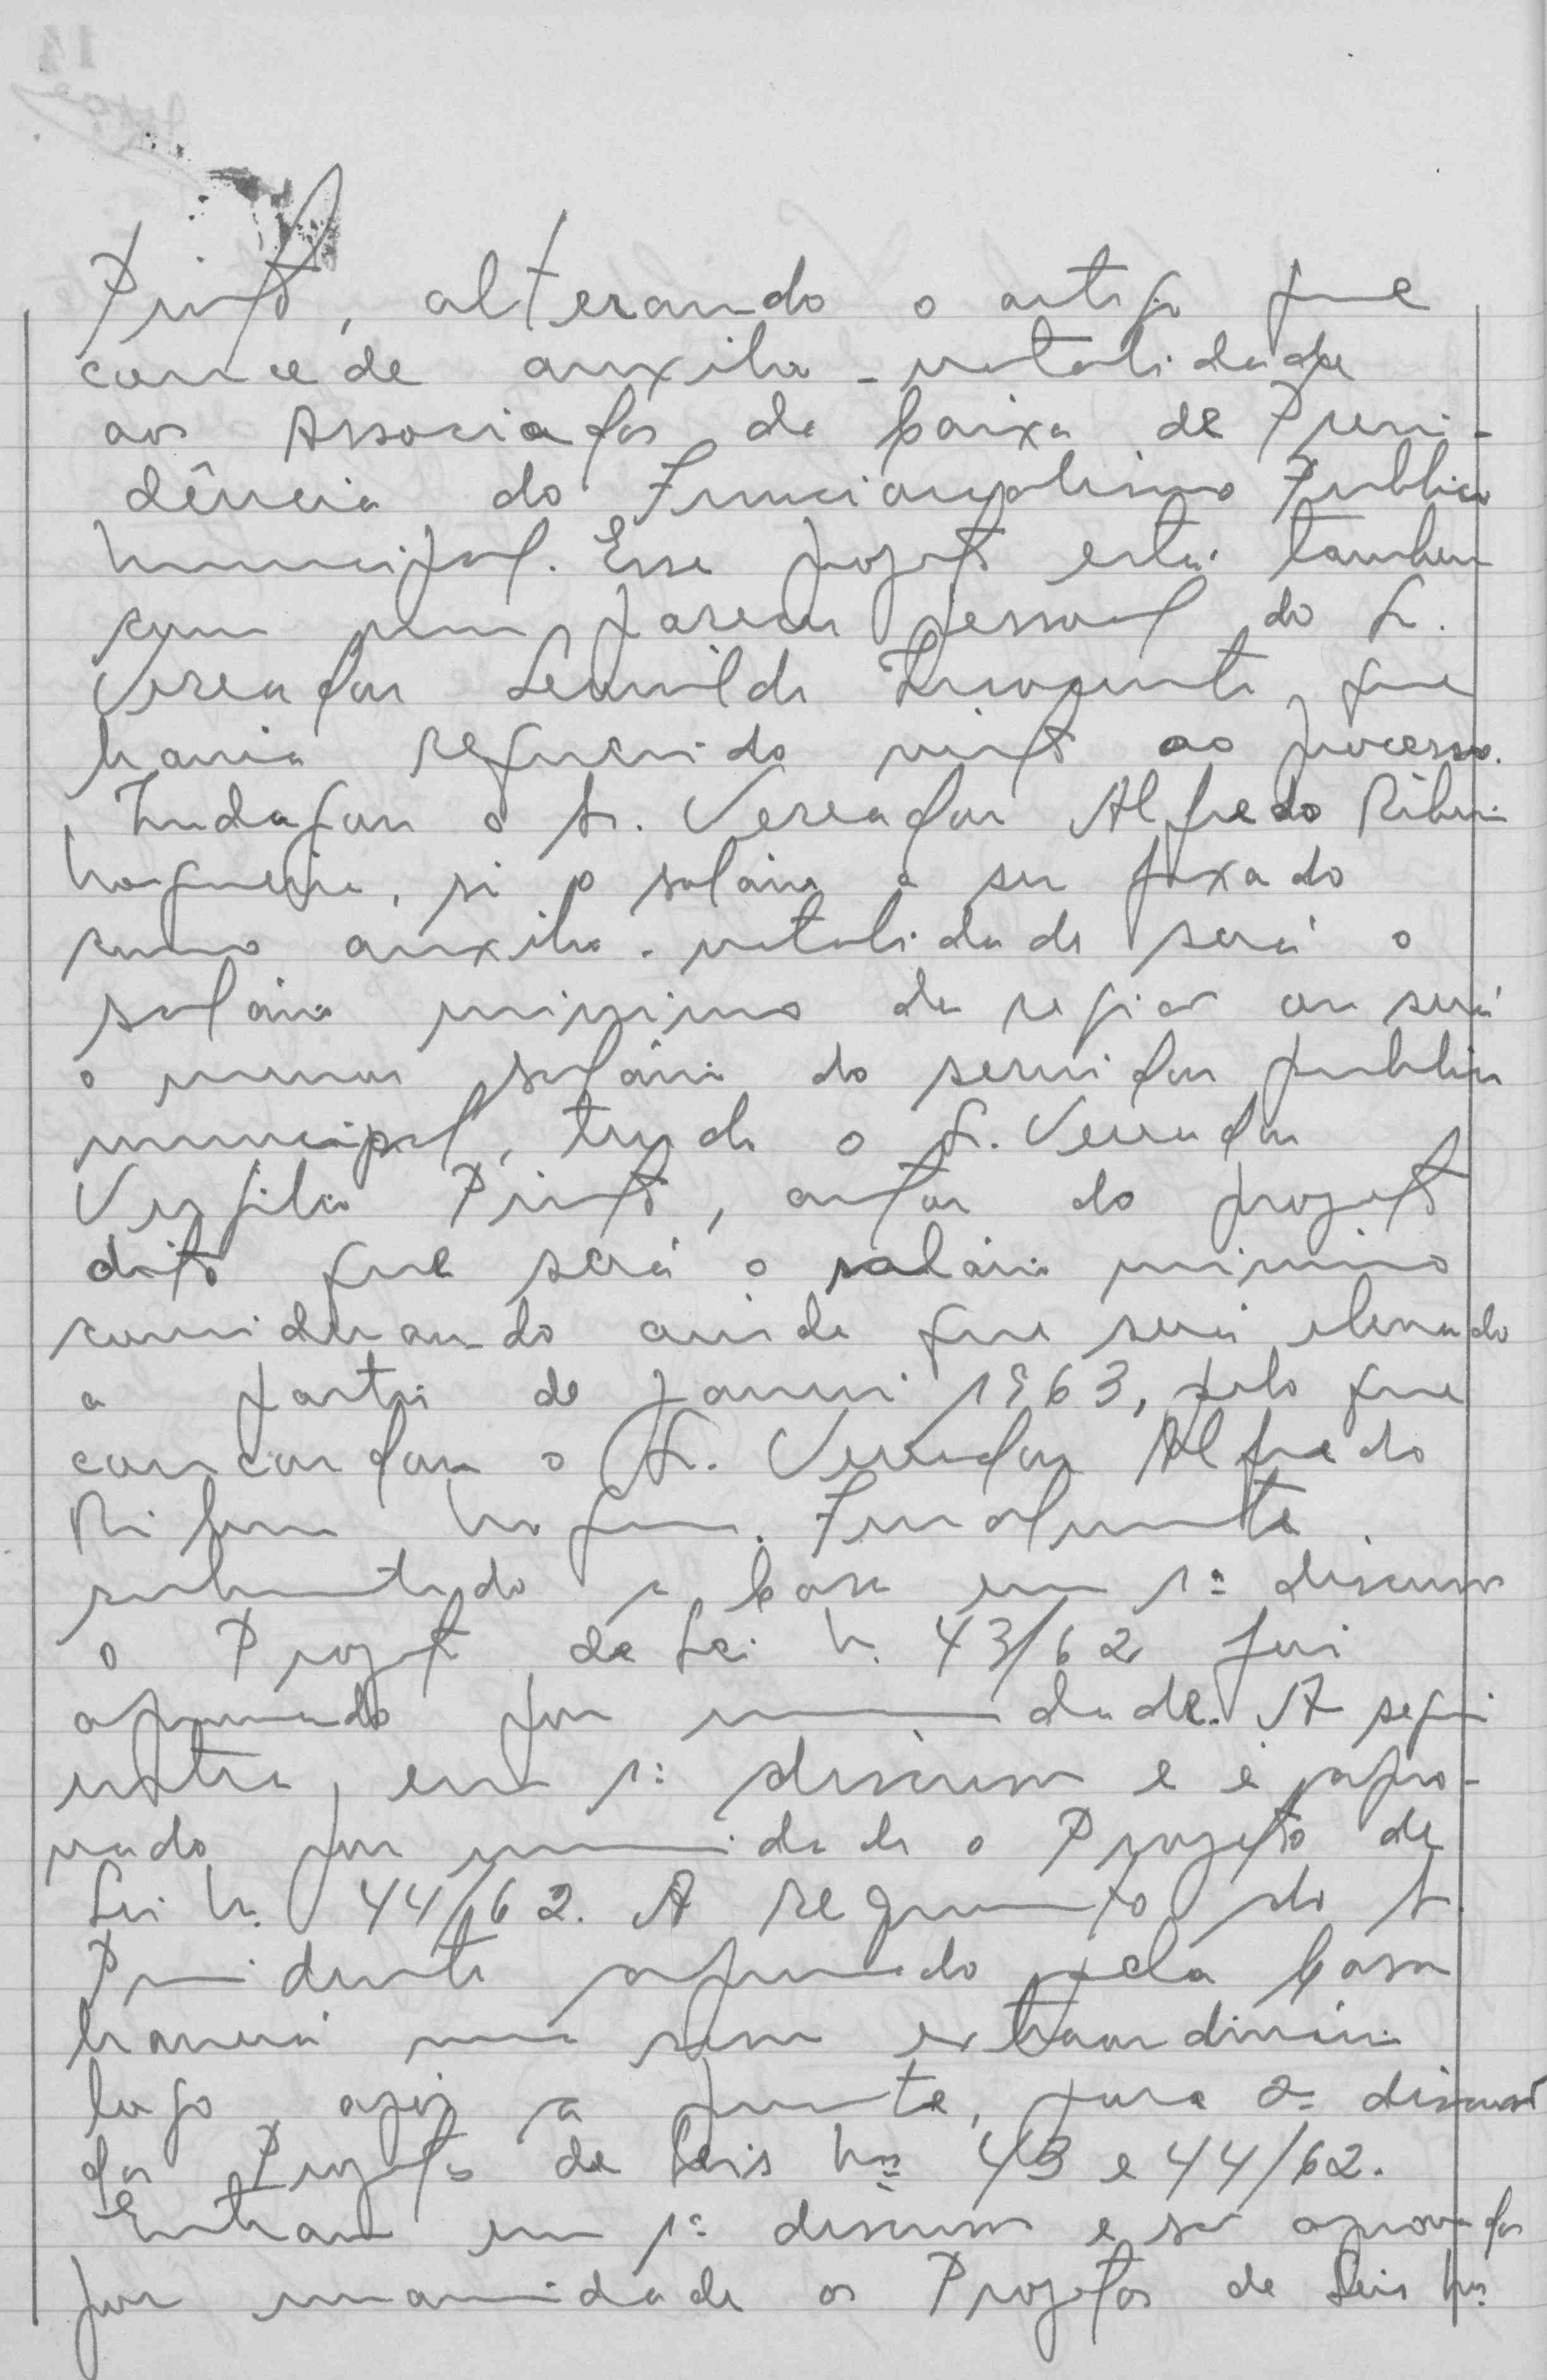 Pinto, alterando o artigo que
concede auxilio-natalidade
aos Associados da Caixa de Previ-
dência do Funcionalismo Publico
Municipal. Esse projeto está tambem
com um parecer pessoal do Sr.
Vereador que
havia requerido vista ao processo.
Indagou o Sr. Vereador Alfredo Ribeiro
Nogueira, si o salário a ser fixado
como auxilio-natalidade será o
salário minimo da região ou será
o menor salário do servidor publico
municipal, tendo o Sr. Vereador
Virgilio Pinto, autor do projeto
dito que será o salário minimo
considerando ainda que será elevado
a partir de Janeiro 1963, pelo que
concordou o Sr. Vereador Alfredo
Ribeiro Nogueira. Finalmente
submetido a Casa em 1ª discussão
o Projeto de Lei N. 43/62 foi
aprovado por unanimidade. A seguir
entra em 1ª discussão e é apro-
vado por unanimidade o Projeto de
Lei N. 44/62. A requerimento do Sr.
Presidente aprovado pela Casa
haverá uma sessão extraordinária
logo após a presente, para 2ª discussão
dos Projetos de Leis Nos 43 e 44/62.
Entram em 1ª discussão e são aprovados
por unanimidade os Projetos de Leis Nos